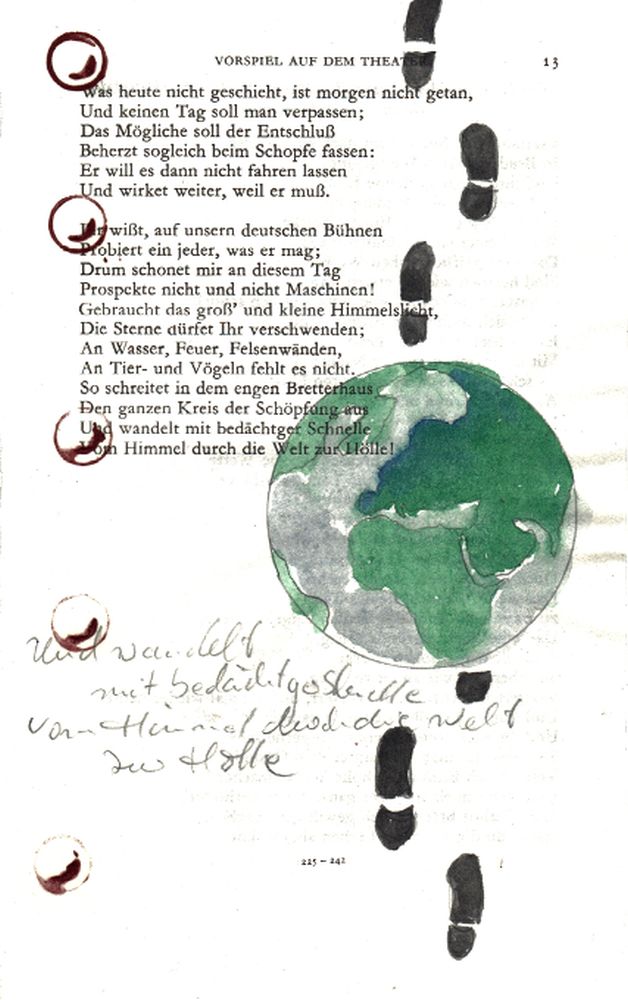 VORSPIEL AUF DEM THEATER 13
Was heute nicht geschieht, ist morgen nicht getan,
Und keinen Tag soll man verpassen;
Das Mögliche soll der Entschluß
Beherzt sogleich beim Schopfe fassen:
Er will es dann nicht fahren lassen
Und wirket weiter, weil er muß.
Ihr wißt, auf unsern deutschen Bühnen
Probiert ein jeder, was er mag;
Drum schonet mir an diesem Tag
Prospekte nicht und nicht Maschinen!
Gebraucht das groß' und kleine Himmelslicht,
Die Sterne dürfet Ihr verschwenden;
An Wasser, Feuer, Felsenwänden,
An Tier- und Vögeln fehlt es nicht.
So schreitet in dem engen Bretterhaus
Den ganzen Kreis der Schöpfung aus
Und wandelt mit bedächt'ger Schnelle
Vom Himmel durch die Welt zur Hölle!
Und wandelt
mit bedächtger Schnelle
vom Himmel durch die Welt
zur Hölle
225 – 242